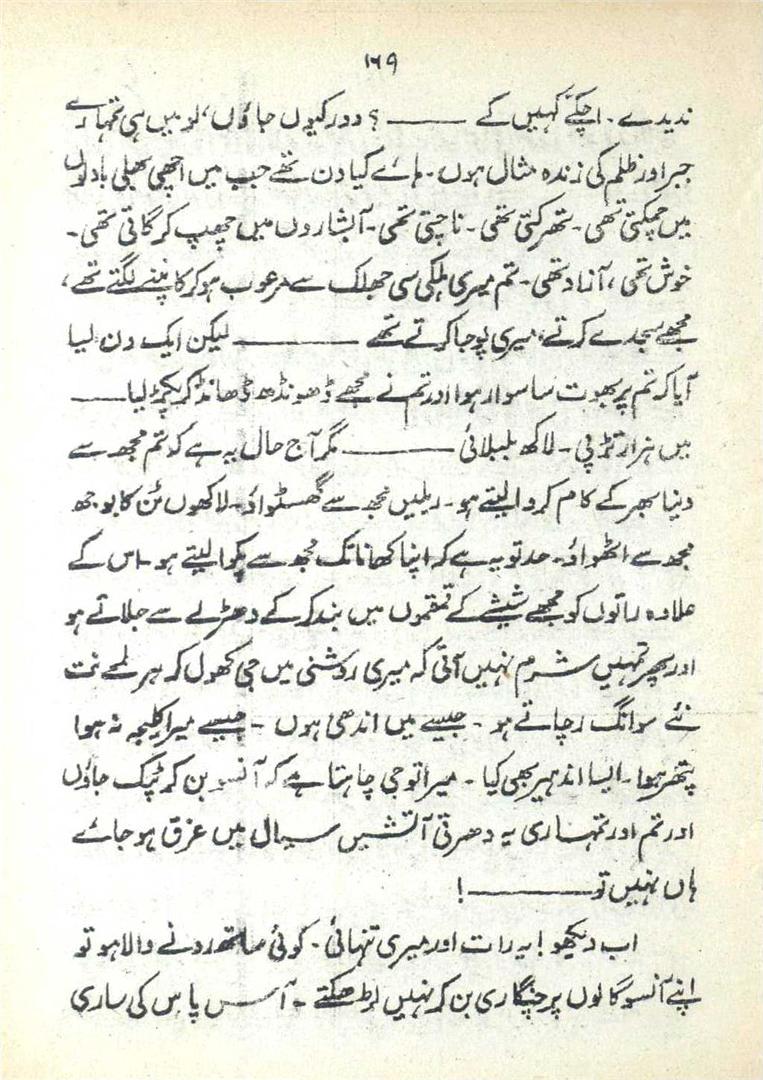 ۱۶۹
ندیدے۔ اچکّے کہیں کے ——— ؟ دور کیوں جاؤں، لو میں ہی تمہارے
جبر اور ظلم کی زندہ مثال ہوں۔ ہائے کیا دن تھے جب میں اچھی بھلی بادلوں
میں چمکتی تھی۔ تھرکتی تھی۔ ناچتی تھی۔ آبشاروں میں چھپ کر گاتی تھی۔
خوش تھی، آزاد تھی۔ تم میری ہلکی سی جھلک سے مرعوب ہو کر کانپنے لگتے تھے،
مجھے سجدے کرتے، میری پوجا کرتے تھے ——— لیکن ایک دن ایسا
آیا کہ تم پر بھوت سا سوار ہوا اور تم نے مجھے ڈھونڈھ ڈھانڈ کر پکڑ لیا ——
میں ہزار تڑپی۔ لاکھ بلبلائی ——— مگر آج حال یہ ہے کہ تم مجھ سے
دنیا بھر کے کام کروا لیتے ہو۔ ریلیں مجھ سے گھسٹواؤ۔ لاکھوں ٹن کا بوجھ
مجھ سے اٹھواؤ۔ حد تو یہ ہے کہ اپنا کھانا تک مجھ سے پکوا لیتے ہو۔ اس کے
علاوہ راتوں کو مجھے شیشے کے قمقموں میں بند کر کے دھڑلے سے جلاتے ہو
اور پھر تمہیں شرم نہیں آتی کہ میری روشنی میں جی کھول کر ہر لمحے نت
نئے سوانگ رچاتے ہو۔ جیسے میں اندھی ہوں۔ جیسے میرا کلیجہ نہ ہوا
پتھر ہوا۔ ایسا اندھیر بھی کیا۔ میرا تو جی چاہتا ہے کہ آنسو بن کر ٹپک جاؤں
اور تم اور تمہاری یہ دھرتی آتشیں سیال میں غرق ہو جائے
ہاں نہیں تو ——— !
اب دیکھو! یہ رات اور میری تنہائی۔ کوئی ساتھ رونے والا ہو تو
اپنے آنسو گالوں پر چنگاری بن کر نہیں لڑھکتے۔ آس پاس کی ساری